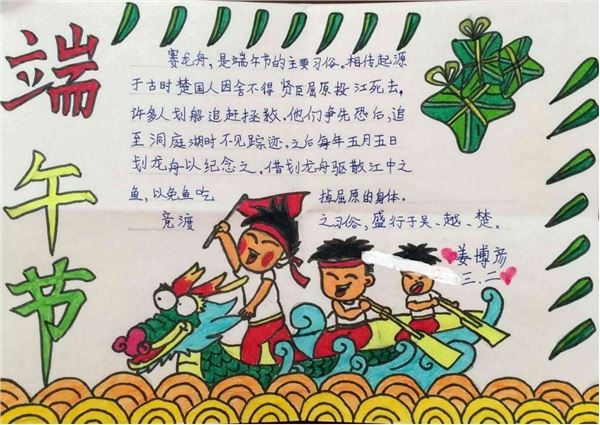 端午节
赛龙舟，是端午节的主要习俗。相传起源
于古时楚国人因舍不得贤臣屈原投江死去，
许多人划船追赶拯救。他们争先恐后，追
至洞庭湖时不见踪迹。之后每年五月五日
划龙舟以纪念之。借划龙舟驱散江中之
鱼，以免鱼吃掉屈原的身体。
竞渡之习俗，盛行于吴、越、楚。
姜博彦
三.二